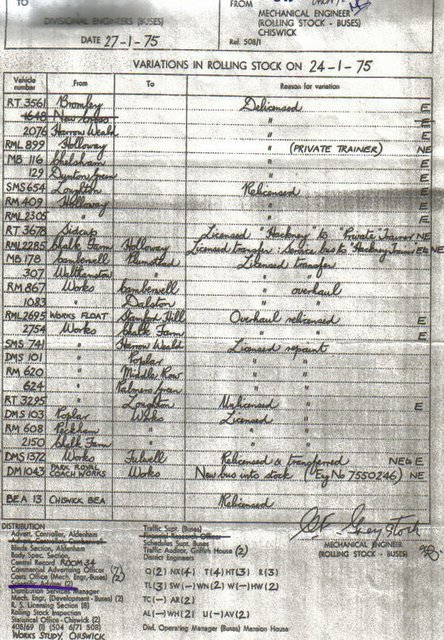 TO
DIVISIONAL ENGINEERS (BUSES)
DATE 27-1-75
FROM
MECHANICAL ENGINEER
(ROLLING STOCK - BUSES)
CHISWICK
Ref. 508/1
VARIATIONS IN ROLLING STOCK ON 24-1-75
Vehicle number From To Reason for variation
RT 3561 Bromley Delicensed E
1648 New Cross " E
2076 Harrow Weald " E
RML 899 Holloway " (PRIVATE TRAINER) NE
MB 116 Chelsham " E
129 " E
SMS 654 Loughton Relicensed E
RM 409 Holloway " E
RML 2305 " " E
RT 3678 Sidcup Licensed "Hackney" to "Private" Trainer NE
RML 2285 Chalk Farm Holloway Licensed transfer: Service bus to "Hackney Trainer" NE
MB 178 Camberwell Plumstead Licensed transfer
307 Walthamstow " " "
RM 867 Works Camberwell " overhaul
1083 " Dalston " "
RML 2695 WORKS FLOAT Stamford Hill Overhaul relicensed E
2754 Works Chalk Farm " " E
SMS 741 " Harrow Weald Licensed repaint
DMS 101 " Poplar " "
RM 620 " Middle Row " "
624 " Palmers Green " "
RT 3295 " Loughton Unlicensed E
DMS 103 Poplar Works Licensed
RM 608 Peckham " "
2150 Chalk Farm " "
DMS 1372 Works Fulwell Relicensed & transferred NE & E
DM 1043 PARK ROYAL COACH WORKS Works New bus into stock (Eng No 7550246) NE
BEA 13 CHISWICK BEA Relicensed
MECHANICAL ENGINEER
(ROLLING STOCK - BUSES)
DISTRIBUTION
Advert. Controller, Aldenham
Blinds Section, Aldenham
Body Spec. Section
Central Record ROOM 34
Commercial Advertising Officer (7)
Costs Office (Mech. Engr.-Buses) (2)
Distribution Services Manager
Mech. Engr. (Development - Buses) (2)
R. S. Licensing Section (8)
Rolling Stock Inspection
Statistical Office - Chiswick (2)
408/69 (1) 504 6/71 508)
WORKS STUDY, CHISWICK
Traffic Supt. (Buses)
Financial Research Officer
Schedules Supt. Buses
Traffic Auditor, Griffith House (2)
District Engineers
Q(2) NX(4) T(4) HT(3) R(3)
TL(3) SW(-) WN(2) W(-) HW(2)
TC(-) AR(2)
AL(-) WH(2) U(-) AV(2)
Divl. Operating Manager (Buses) Mansion House